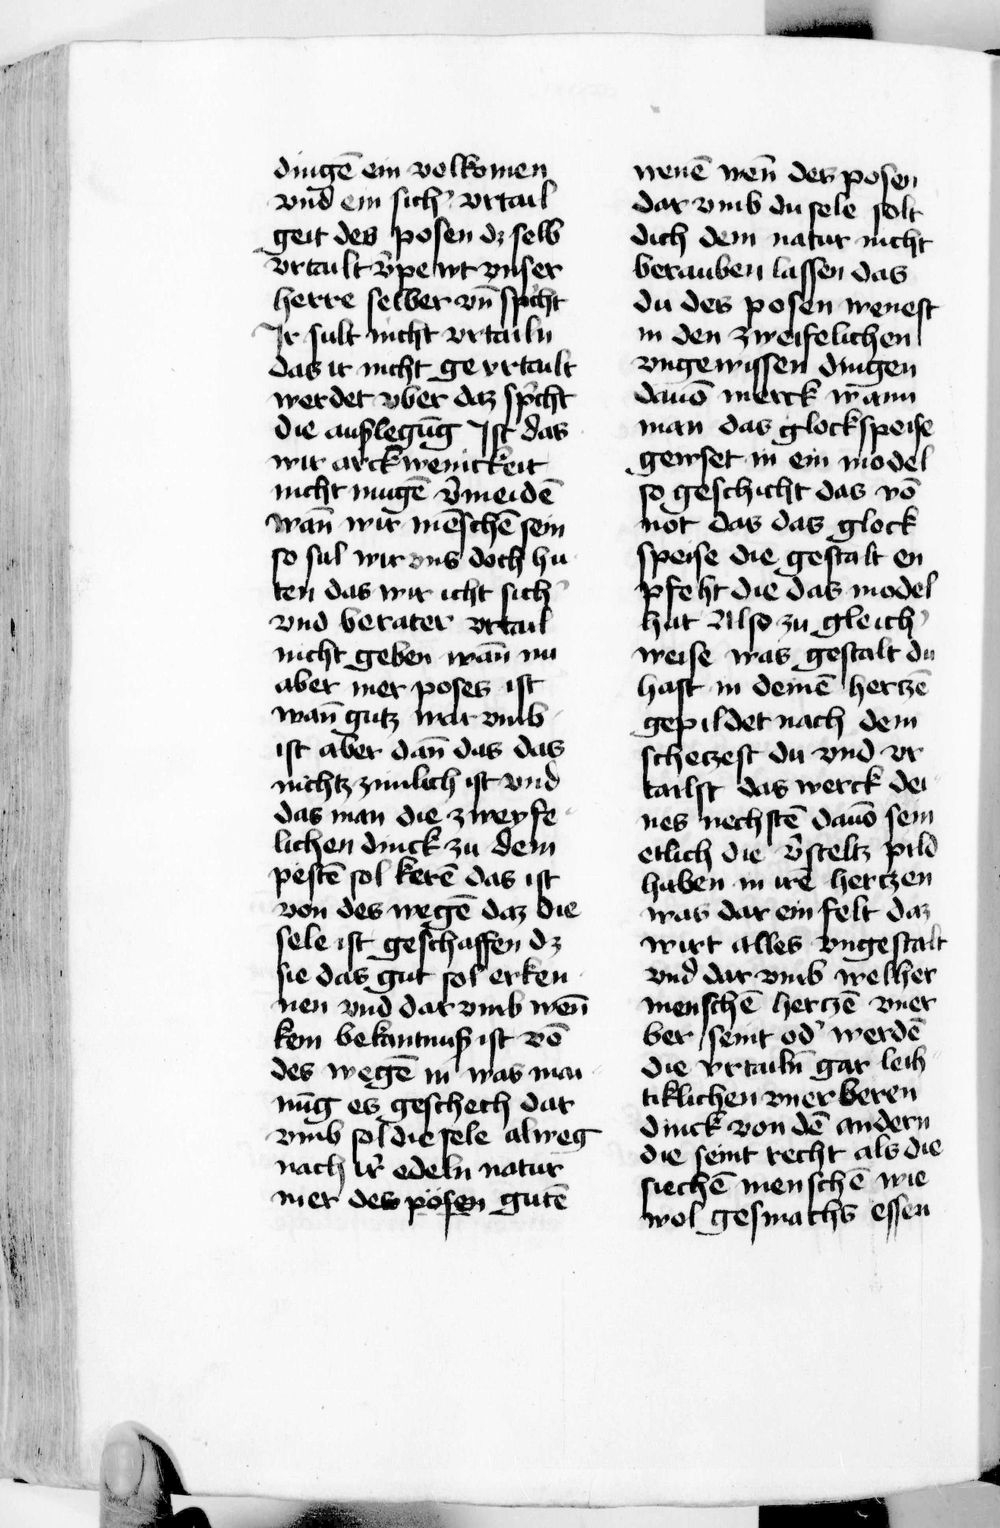 dingē ein volkomen
vnd ein sich' vrtail
geit des posen dz selb
vrtailt v̄pewt vnser
herre selber vn̄ sp̄cht
Ir sult nicht vrtailn
das ir nicht gevrtailt
werdet vber daz sp̄cht
die außlegūg Ist das
wir arckwenickeit
nicht mugē v̄meidē
wan̄ wir mēschē sein
so sul wir vns doch hu
ten das wir icht sich'
vnd berater vrtail
nicht geben wan̄ nu
aber mer poses ist
wan̄ gutz war vmb
ist aber dan̄ das das
nichtz zimlich ist vnd
das man die zweyfe
lichen dinck zu dem
pestē sol kerē das ist
von des wegē daz die
sele ist geschaffen dz
sie das gut sol erken
nen vnd dar vmb wen̄
kein bekantnuß ist vō
des wegē in was mai
nūg es geschech dar
vmb sol die sele alweg
nach ir̄ edeln natur
mer des posen gutē
wenē wen̄ des posen
dar vmb du sele solt
dich dein natur nicht
berauben lassen das
du des posen wenest
in den zweifelichen
vngewissen dingen
dauō merck wann
man das glockspeise
gewset in ein model
so geschicht das vō
not das das glock
speise die gestalt en
pfeht die das model
hat Also zu gleich'
weise was gestalt du
hast in deinē hertzē
gepildet nach dem
schetzest du vnd vr
tailst das werck dei
nes nechstē dauō sein
etlich die v̄steltz pild
haben in irē hertzen
was dar ein felt daz
wirt alles vngestalt
vnd dar vmb welher
menschē hertzē vner
ber seint od' werdē
die vrtailn̄ gar leih
tiklichen vnerberen
dinck von dē andern
die seint recht als die
siechē menschē wie
wol gesmachs essen